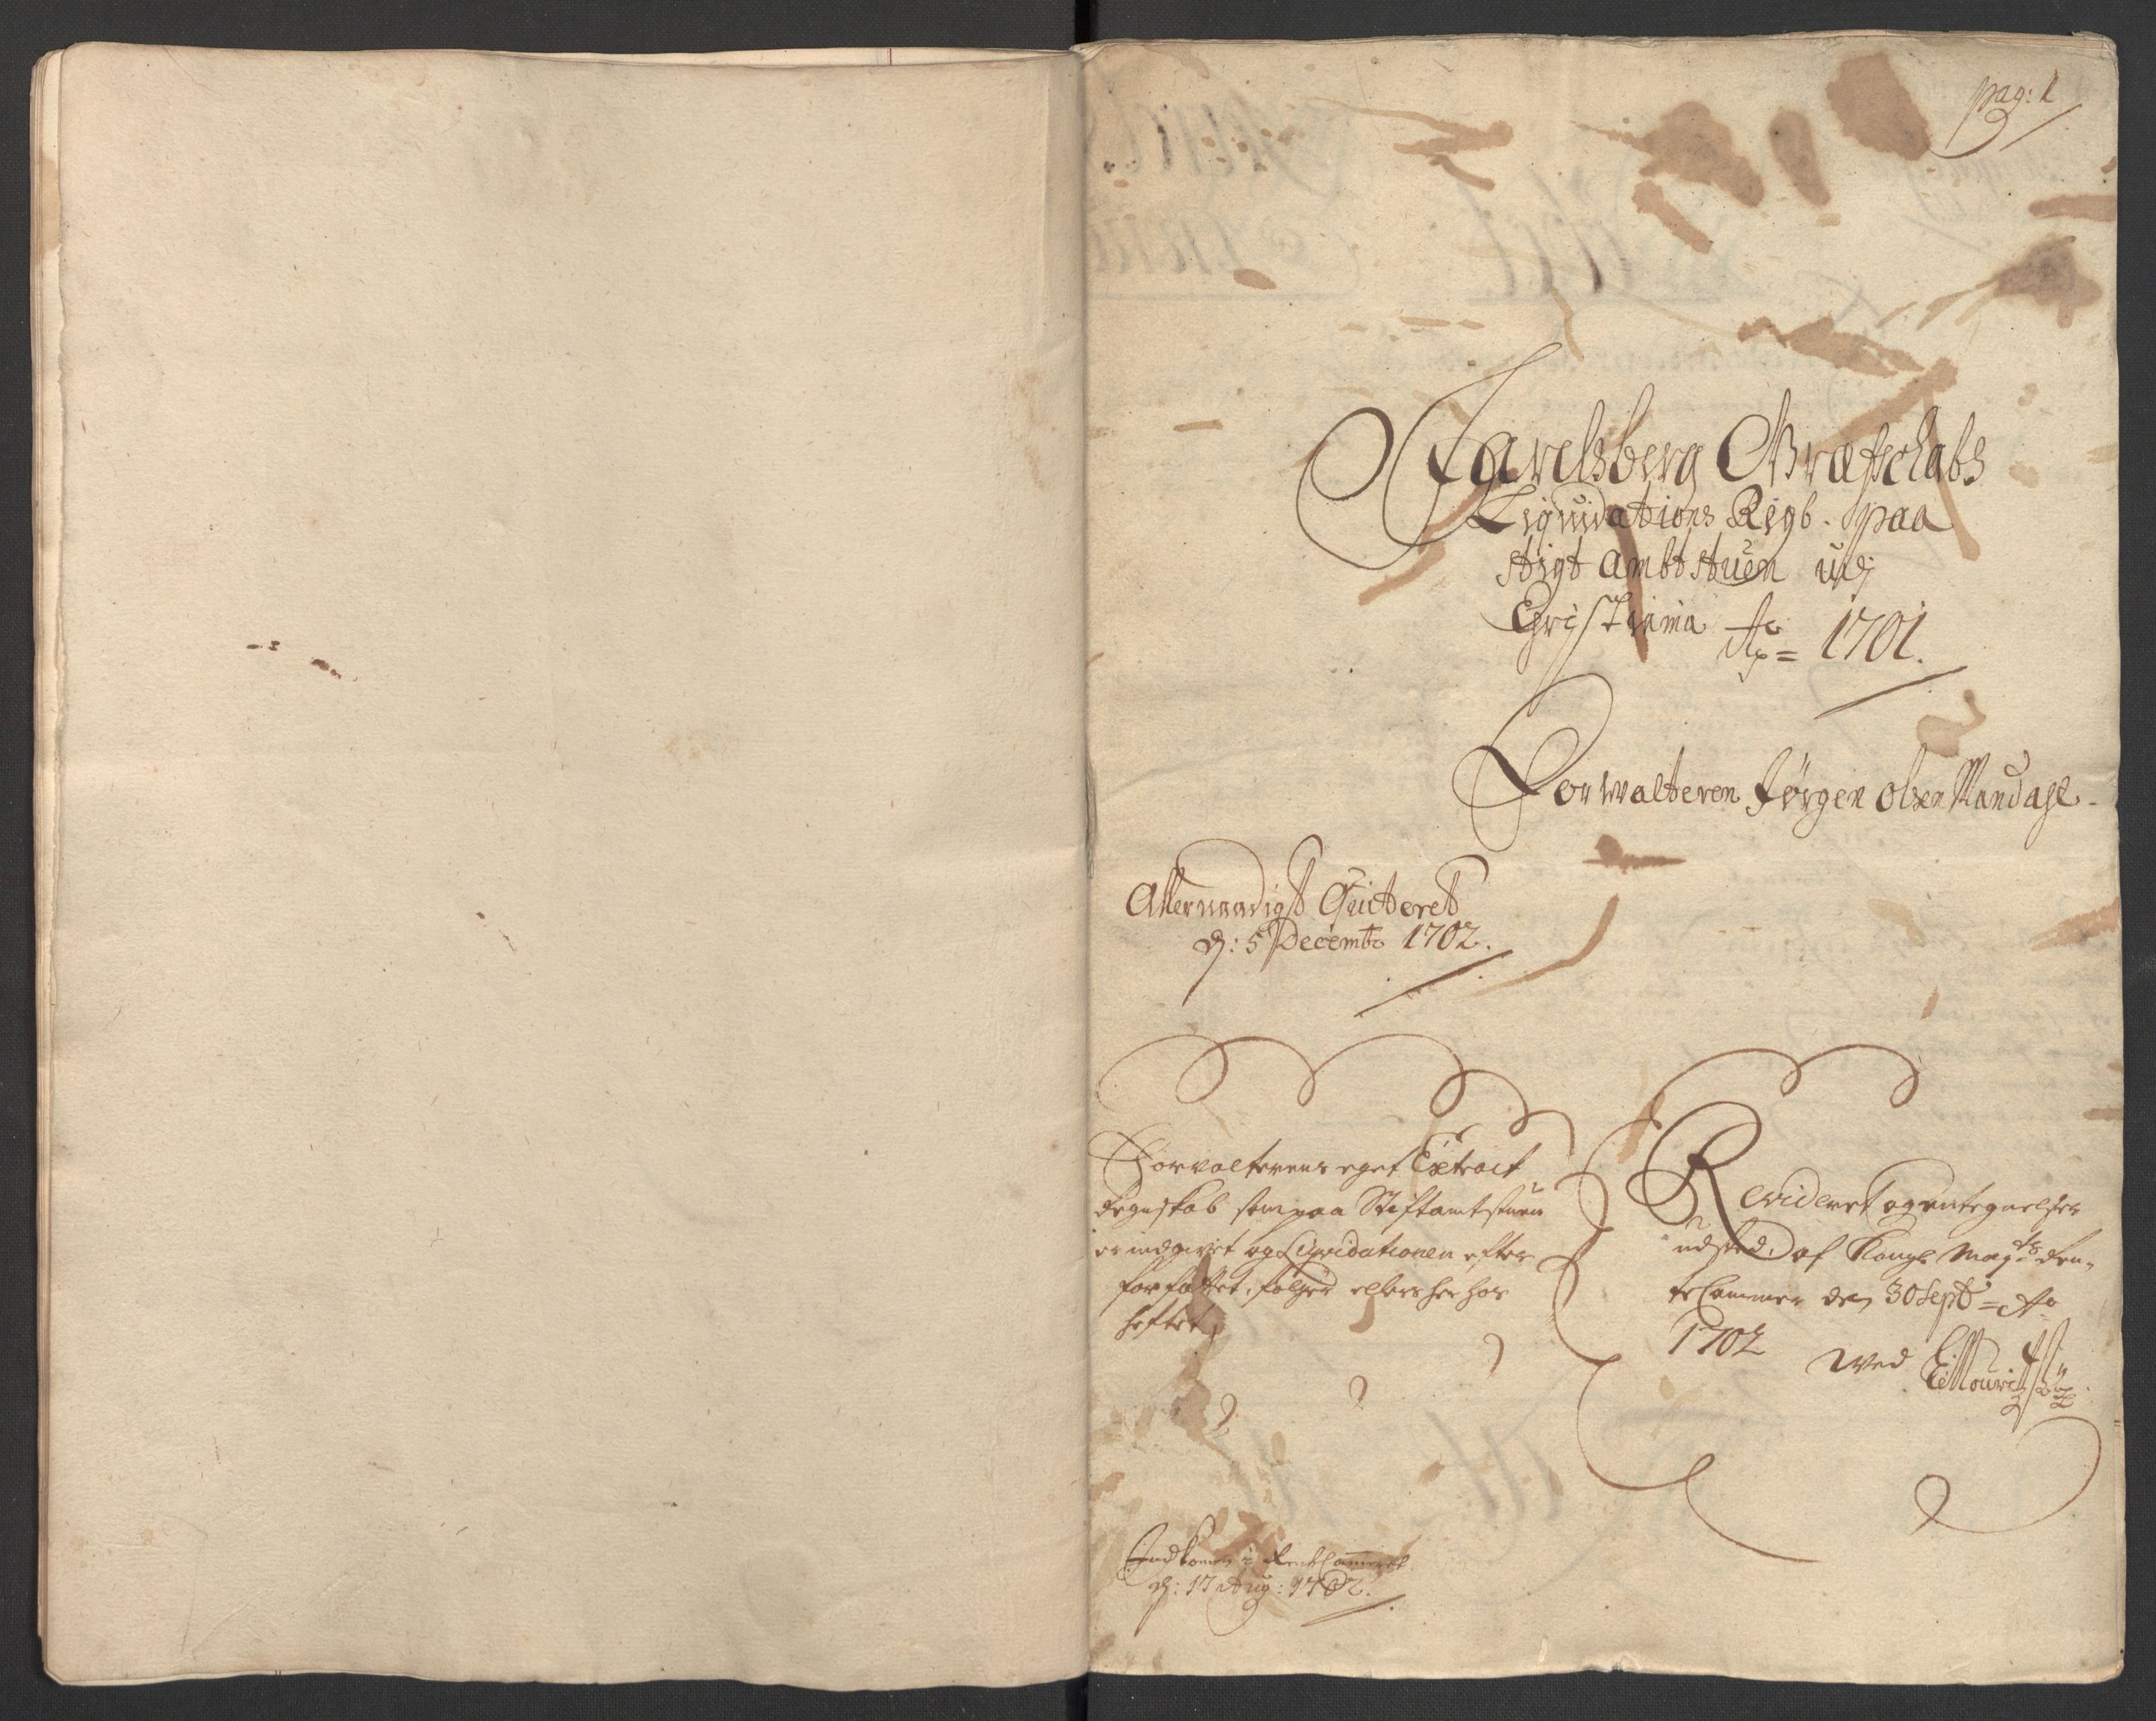 pag: 1
Jarelsberg Græfschabs
Liqvidations Regb. paa
Stigt Ambtstuen udj
Christiania Ao = 1701.
Forwalteren Jørgen Olsen Mandahl
Allernaadigst Quiteret
dj: 5 Decembr 1702.
Forvalterens eget Extract
Regnskab som paa Stiftamtstuen
er indgivet og Liqvidationen efter
forfattet, følger ellers her hos
heftet
Revideret og antegnelser
udsted: af Kongl Mayts Ren-
te Cammer den 30 Sept = Ao
1702
Wed
Indkomen i RentCammeret
dj: 17 Aug: 1702.